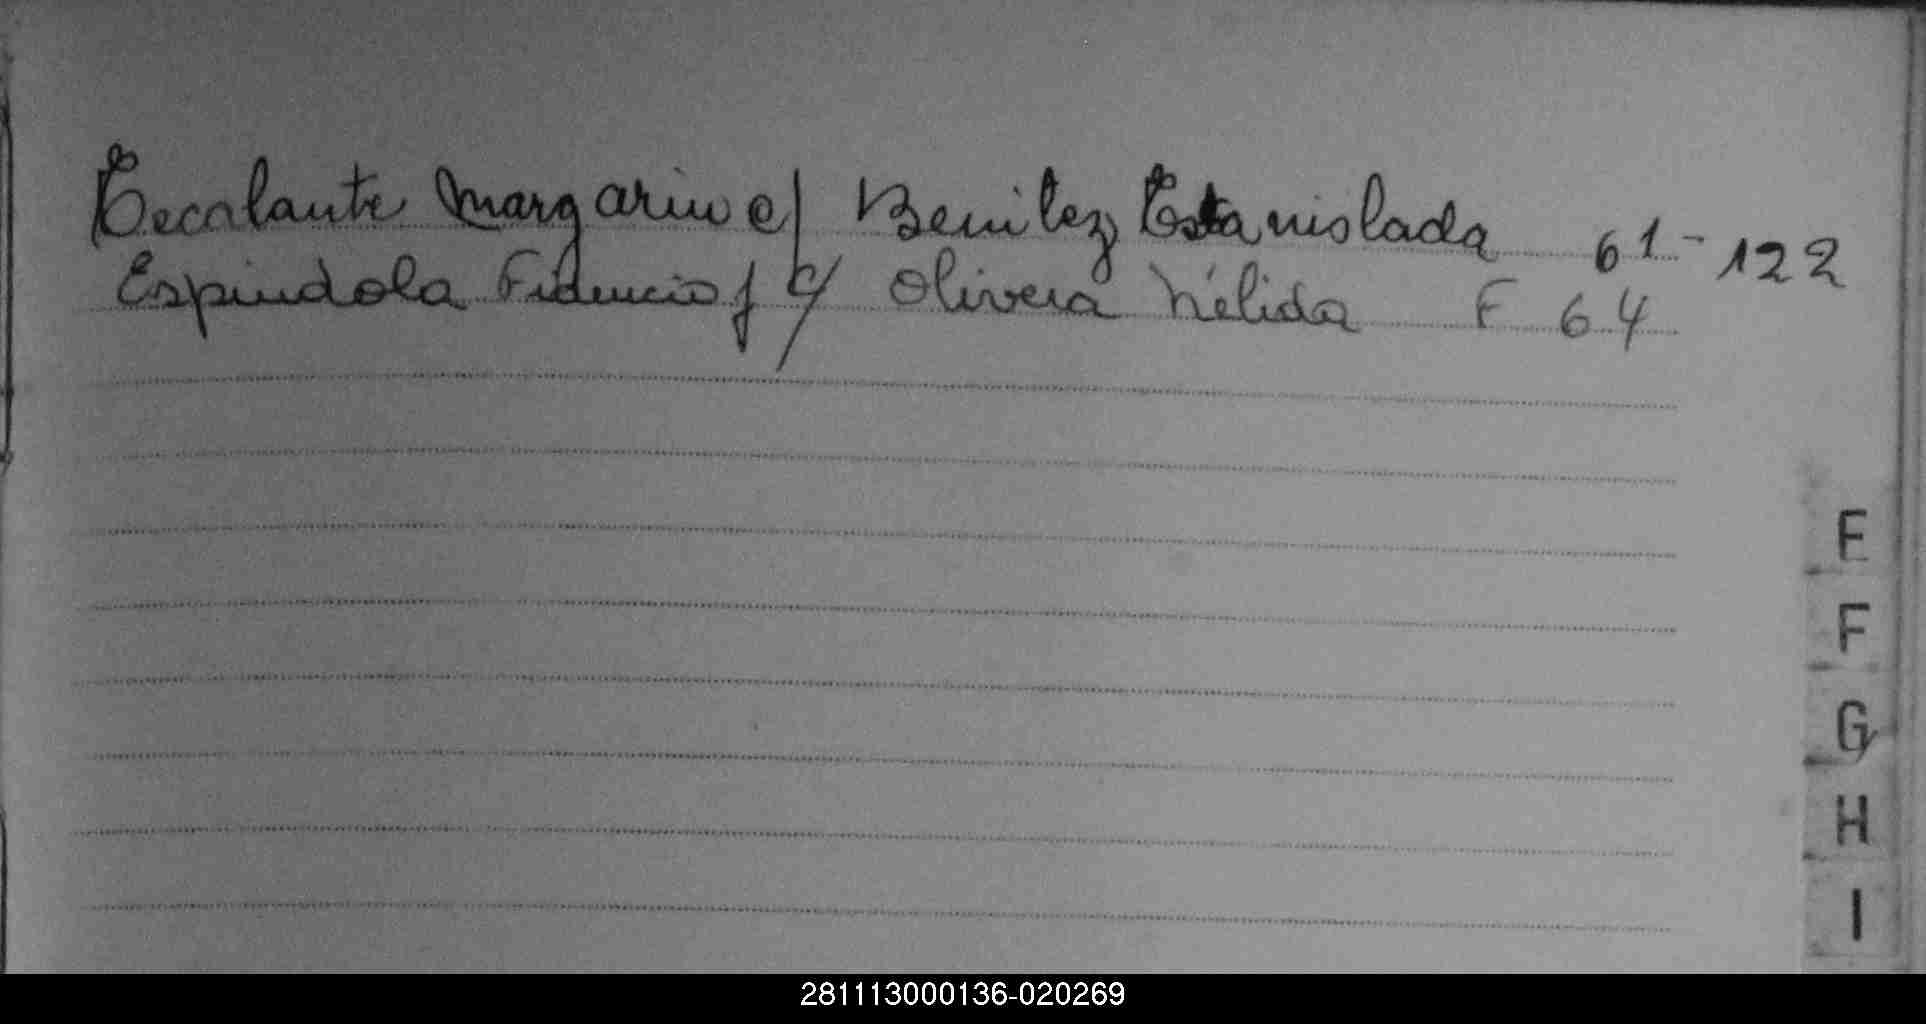 Escalante Margarino c/ Benitez Estanislada 61-122
Espindola Fidencio f c/ Olivera Nélida F 64
E
F
G
H
I
281113000136-020269